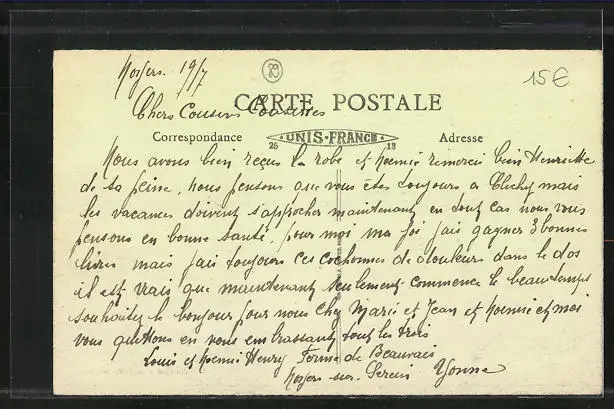 Noyers. 19/7
89
15€
Chers Cousins Cousines
CARTE POSTALE
Correspondance
UNIS-FRANCE
25 13
Adresse
Nous avons bien reçus la robe et Noemie remercie bien Henriette
de sa peine, nous pensons que vous êtes toujours a Clichy mais
les vacances doivent s'approcher maintenant en tout cas nous vous
pensons en bonne santé. pour moi ma foi j'ais gagner 3 bonnes
livres mais j'ais toujours ces cochonnes de douleurs dans le dos
il est vrais que maintenant seulement commence le beau temps
souhaitez le bonjour pour nous chez Marie et Jean et Noemie et moi
vous quittons en vous embrassant tout les trois
Louis et Noemie Henry Ferme de Beauvais
Noyers sur Serein Yonne